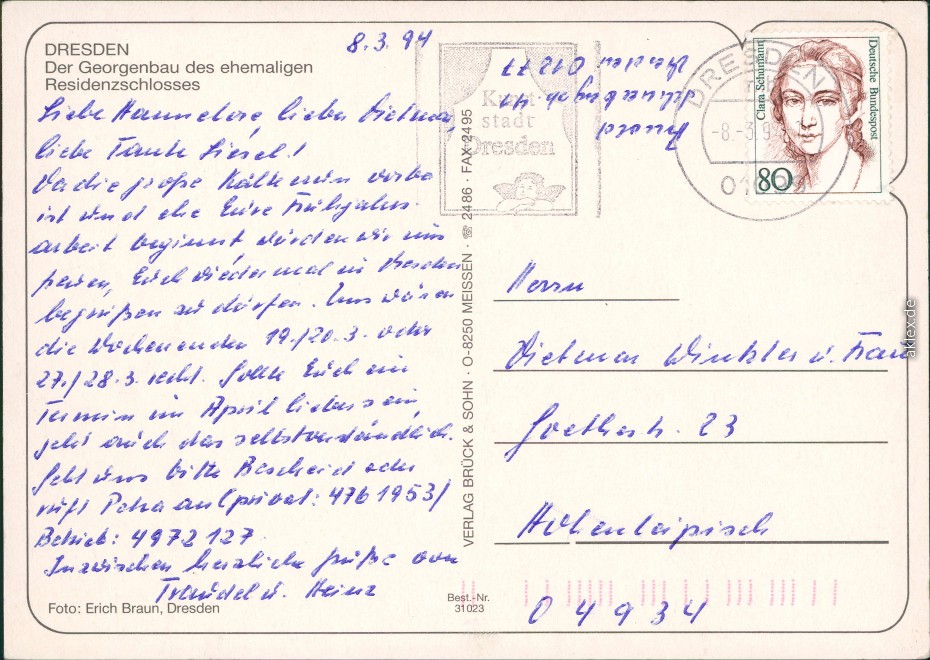 DRESDEN
Der Georgenbau des ehemaligen
Residenzschlosses
8.3.94
Liebe Hannelore, lieber Dietmar,
liebe Tante Liesel!
Da die große Kälte nun vorbei
ist und ehe Eure Frühjahrs-
arbeit beginnt, würden wir uns
freuen, Euch wieder mal in Dresden
begrüßen zu dürfen. Uns wären
die Wochenenden 19./20.3. oder
27./28.3. recht. Sollte Euch ein
Termin im April lieber sein,
geht auch das selbstverständlich.
Gebt uns bitte Bescheid oder
ruft Petra an (privat: 4761953/
Betrieb: 4972 127.
Inzwischen herzliche Grüße von
Traudel u. Heinz
Foto: Erich Braun, Dresden
Best.-Nr.
31023
VERLAG BRÜCK & SOHN · O-8250 MEISSEN · ☎ 2486 · FAX 2495
Kunst
stadt
Dresden
DRESDEN
-8.-3.9
Clara Schumann
Deutsche Bundespost
80
Dresden 01277
Herrn
Dietmar Winkler u. Frau
Goethestr. 23
Hohenleipisch
04934
aklex.de